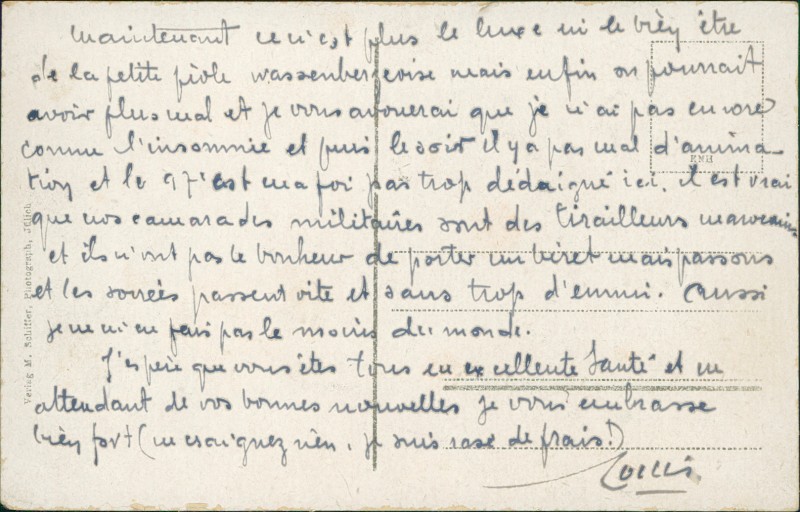 Maintenant ce n'est plus le luxe ni le bièn être
de la petite piole wassenbergeoise mais enfin on pourrait
avoir plus mal et je vous avouerai que je n'ai pas encore
connu l'insomnie et puis le soir il y a pas mal d'anima-
tion et le 97e est ma foi pas trop dédaigné ici. Il est vrai
que nos camarades militaires sont des tirailleurs marocains
et ils n'ont pas le bonheur de porter un béret mais passons
et les soirées passent vite et sans trop d'ennui. Aussi
je ne m'en fais pas le moins du monde.
J'espère que vous êtes tous en excellente santé et en
attendant de vos bonnes nouvelles je vous embrasse
bièn fort (ne craignez rièn, je suis rasé de frais!)
Louis
Verlag M. Schiffer, Photograph, Jülich
ENH